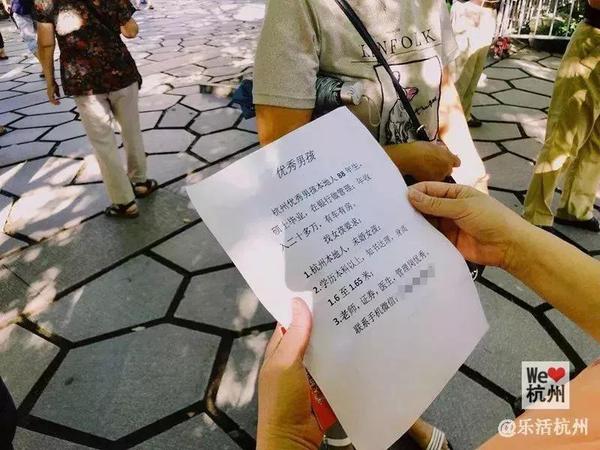 INFOLK
优秀男孩
杭州优秀男孩本地人88年生,
硕士毕业,在银行做管理;年收
入二十多万,有车有房。
找女孩要求;
1.杭州本地人,未婚女孩;
2.学历本科以上,知书达理,身高
1.6至1.65米;
3.老师,证券,医生,管理岗优秀,
联系手机微信:
We
杭州
@乐活杭州